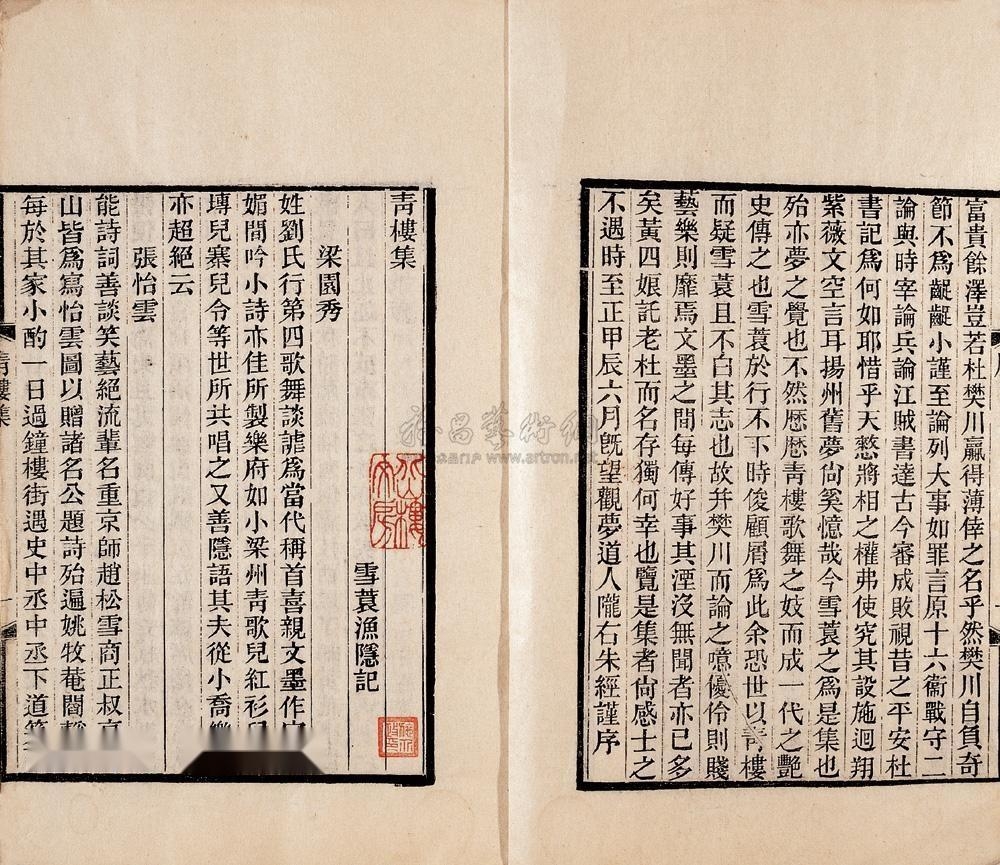 富貴餘澤豈若杜樊川贏得薄倖之名乎然樊川自負奇
節不為齪齪小謹至論列大事如罪言原十六衞戰守二
論與時宰論兵論江賊書達古今審成敗視昔之平安杜
書記為何如耶惜乎天憗將相之權弗使究其設施迴翔
紫薇文空言耳揚州舊夢尙奚憶哉今雪蓑之為是集也
殆亦夢之覺也不然歷歷靑樓歌舞之妓而成一代之艷
史傳之也雪蓑於行不下時俊顧屑為此余恐世以靑樓
而疑雪蓑且不白其志也故幷樊川而論之噫優伶則賤
藝樂則靡焉文墨之間每傳好事其湮沒無聞者亦已多
矣黃四娘託老杜而名存獨何幸也覽是集者尙感士之
不遇時至正甲辰六月旣望觀夢道人隴右朱經謹序
靑樓集
雪蓑漁隱記
梁園秀
姓劉氏行第四歌舞談謔為當代稱首喜親文墨作字
媚間吟小詩亦佳所製樂府如小梁州靑歌兒紅衫兒
塼兒寨兒令等世所共唱之又善隱語其夫從小喬樂
亦超絕云
張怡雲
能詩詞善談笑藝絕流輩名重京師趙松雪商正叔高
山皆為寫怡雲圖以贈諸名公題詩殆遍姚牧菴閻靜
每於其家小酌一日過鐘樓街遇史中丞中丞下道笑
靑樓集
一
www.artron.net